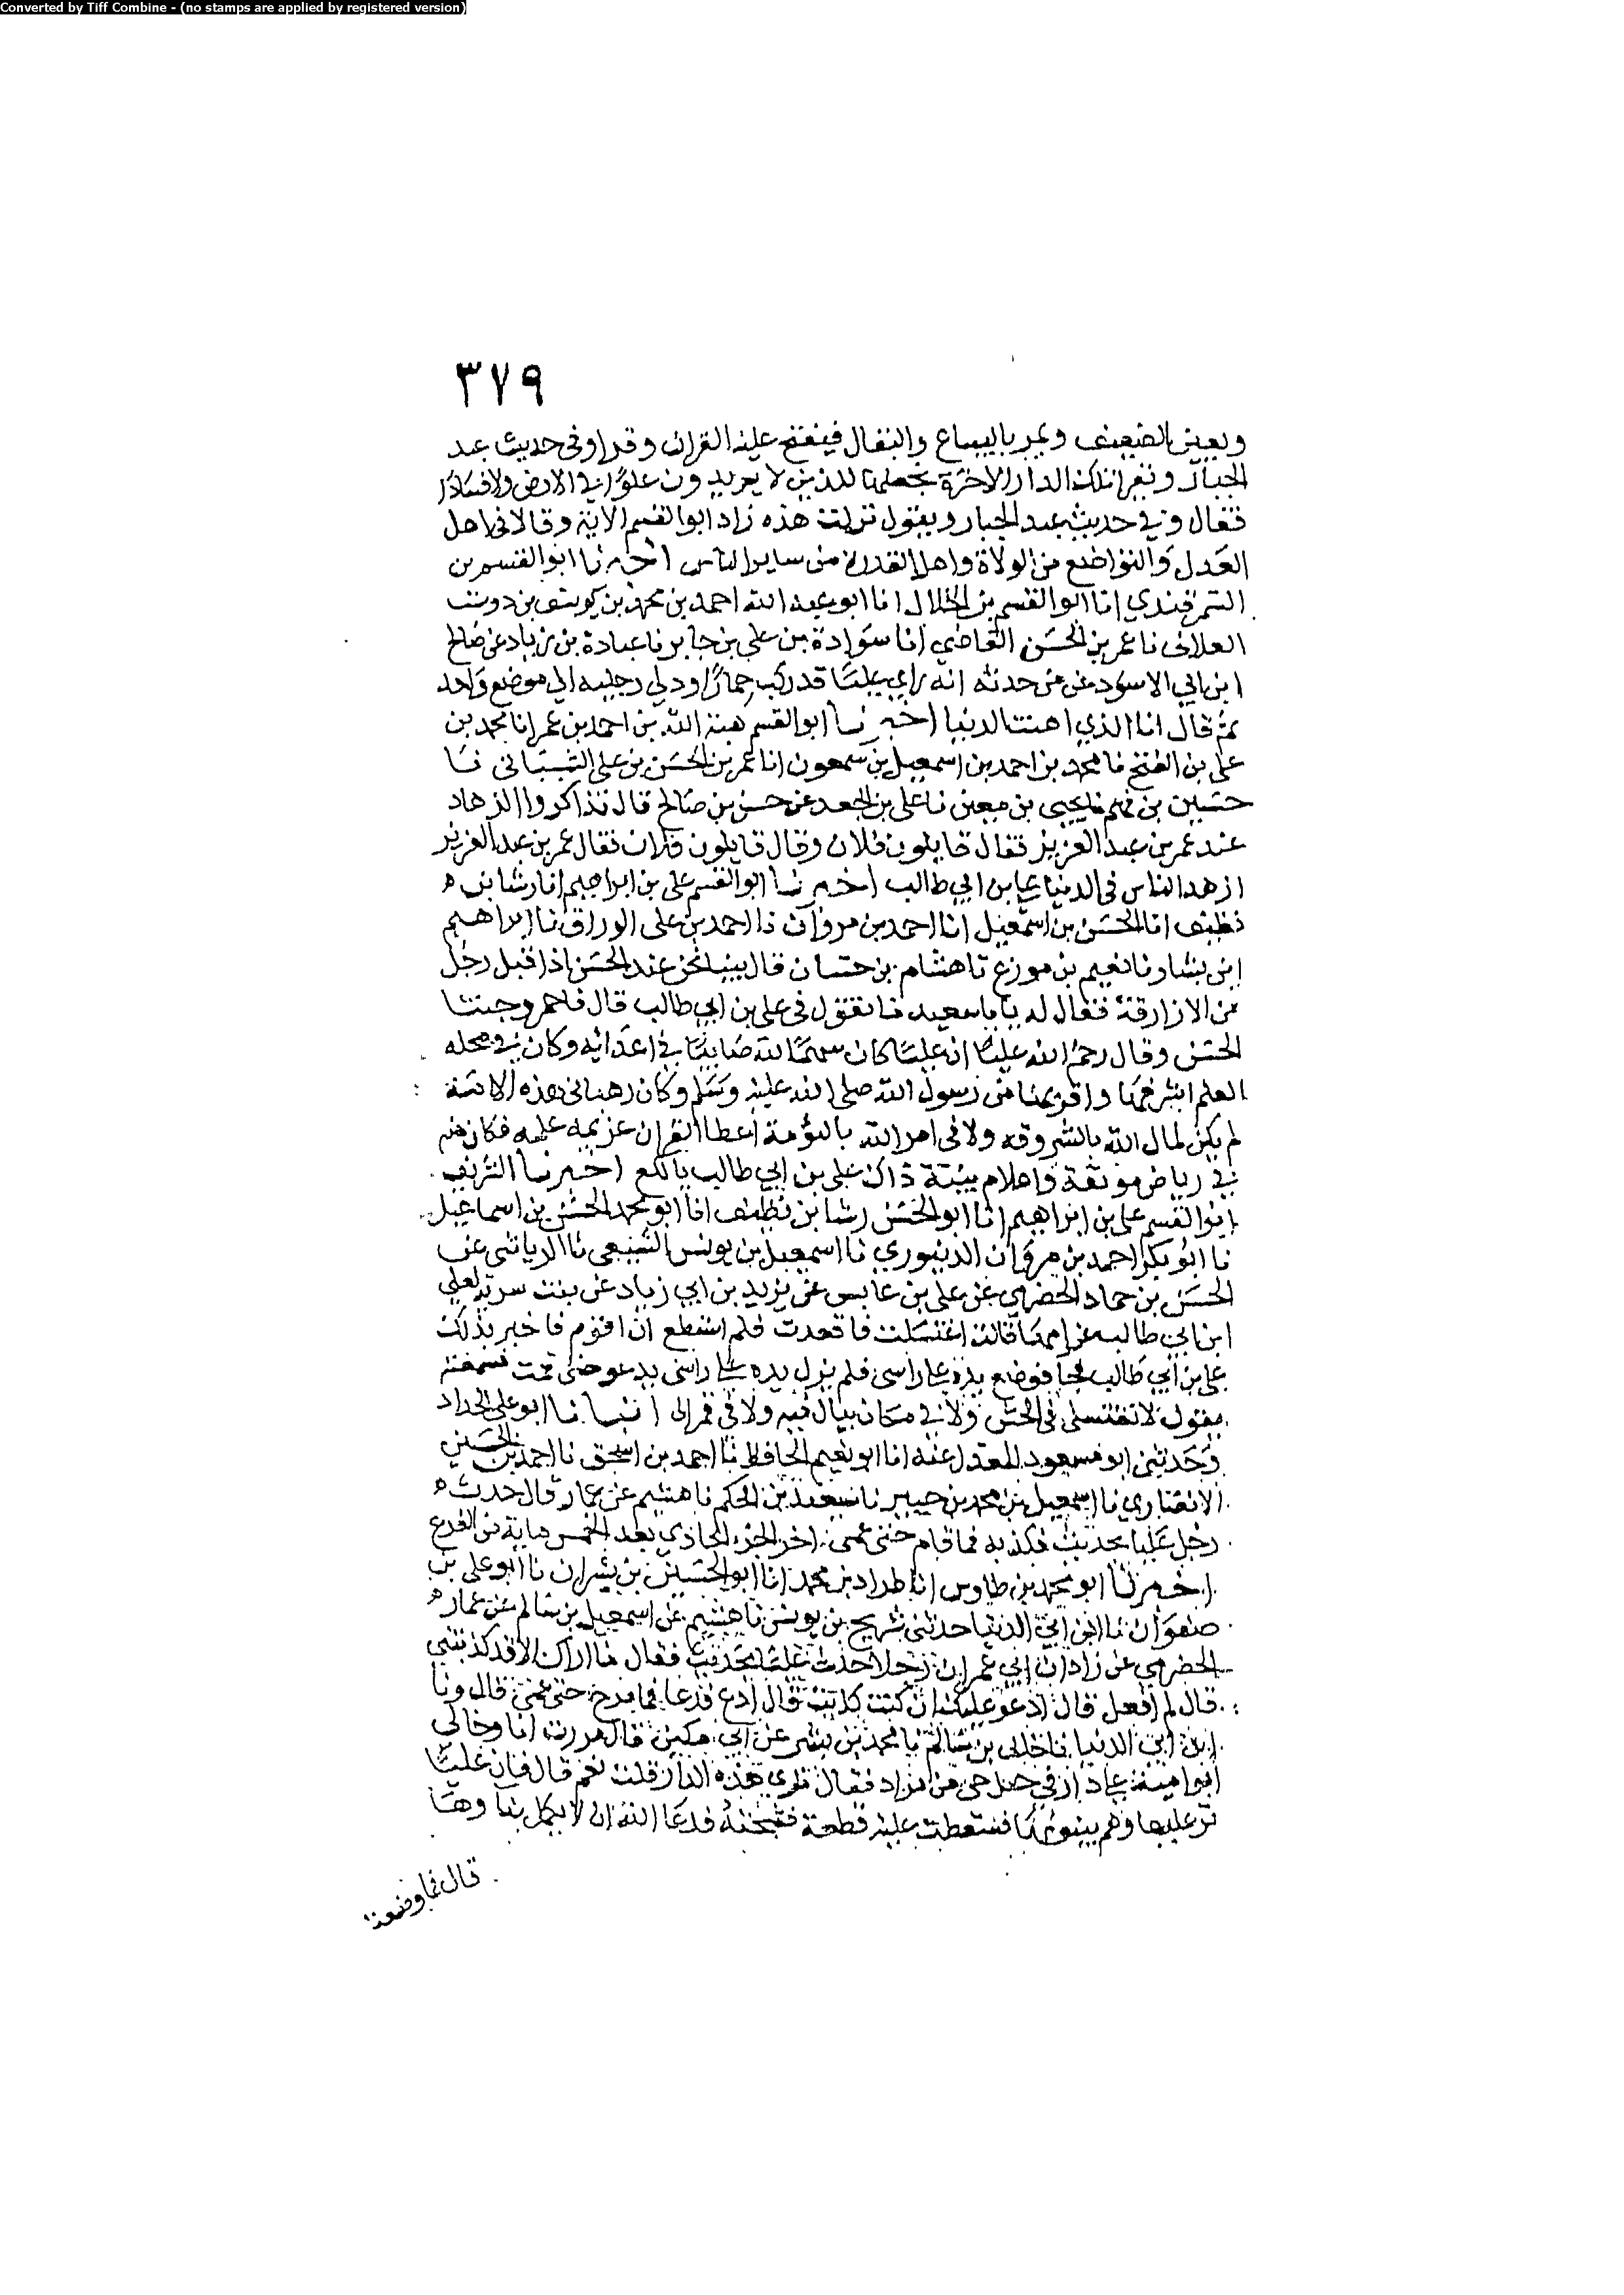 Converted by Tiff Combine - (no stamps are applied by registered version)
٣٧٩
ويعين الضعيف ويمر بالبياع والبقال فيفتح عليه القران وقرا وفي حديث عبد
الجبار ونقرا تلك الدار الاخرة نجعلها للذين لا يريدون علوا في الارض ولا فسادا
فقال وفي حديث عبد الجبار ويقول نزلت هذه زاد ابو القسم الاية وقالا في اهل
العدل والتواضع من الولاة واهل القدرة من ساير الناس اخبرنا ابو القسم بن
السمرقندي انا ابو القسم بن الخلال انا ابو عبد الله احمد بن محمد بن يوسف بن دوست
العلاف نا عمر بن الحسن القاضي انا سوادة بن علي بن جابر نا عبادة بن زياد عن صالح
ابن ابي الاسود عن من حدثه انه راي عليا قد ركب حمارا ودلي رجليه الي موضع واحد
ثم قال انا الذي اهنت الدنيا اخبرنا ابو القسم هبة الله بن احمد بن عمر انا محمد بن
علي بن الفتح نا محمد بن احمد بن اسمعيل بن سمعون انا عمر بن الحسن بن علي الشيباني نا
حسين بن فهم نا يحيى بن معين نا علي بن الجعد عن حسن بن صالح قال تذاكروا الزهاد
عند عمر بن عبد العزيز فقال قايلون فلان وقال قايلون فلان فقال عمر بن عبد العزيز
ازهد الناس في الدنيا علي بن ابي طالب اخبرنا ابو القسم علي بن ابراهيم انا رشا بن
نظيف انا الحسن بن اسمعيل انا احمد بن مروان نا احمد بن علي الوراق نا ابراهيم
ابن بشار نا نعيم بن مورع نا هشام بن حسان قال بينا نحن عند الحسن اذ اقبل رجل
من الازارقة فقال له يا با سعيد ما تقول في علي بن ابي طالب قال فاحمر وجنتا
الحسن وقال رحم الله عليا ان عليا كان سهما لله صايبا في اعدايه وكان في محله
العلم اشرفها واقربها من رسول الله صلى الله عليه وسلم وكان رهباني هذه الامة
لم يكن لمال الله بالسروقة ولا في امر الله بالنؤمة اعطا القران عزيمة علمه فكان منه
في رياض مونقة واعلام بينة ذاك علي بن ابي طالب يا لكع اخبرنا الشريف
ابو القسم علي بن ابراهيم انا ابو الحسن رشا بن نظيف انا ابو محمد الحسن بن اسماعيل
نا ابو بكر احمد بن مروان الدينوري نا اسمعيل بن يونس الشيعي نا الرياشي عن
الحسن بن حماد الحضرمي عن علي بن عابس عن يزيد بن ابي زياد عن بنت سرية لعلي
ابن ابي طالب عن امها قالت اغتسلت فاقعدت فلم استطع ان اقوم فاخبر بذلك
علي بن ابي طالب فجا فوضع يده علي راسي فلم يزل يده علي راسي يدعو حتى قمت فسمعته
يقول لا تغتسلي في الحش ولا في مكان يبال فيه ولا في قمر الى انبانا ابو علي الحداد
وحدثني ابو مسعود المعدل عنه انا ابو نعيم الحافظ نا احمد بن اسحق نا احمد بن الحسين
الانصاري نا اسمعيل بن محمد بن جبير نا سعيد بن الحكم نا هشيم عن عمار قال حدث
رجل عليا بحديث فكذبه فما قام حتى عمى. اخر الجزء الحادي بعد الخمس ماية من الفرع
اخبرنا ابو محمد بن طاوس انا طراد بن محمد انا ابو الحسين بن بشران نا ابو علي بن
صفوان نا ابن ابي الدنيا حدثني شريح بن يونس نا هشيم عن اسمعيل بن سالم عن عمار
الحضرمي عن زاذان ابي عمر ان رجلا حدث عليا بحديث فقال ما اراك الا قد كذبتني
قال لم افعل قال ادعو عليك ان كنت كذبت قال ادع فدعا فما برح حتى عمي قال ونا
ابن ابي الدنيا نا خلف بن سالم نا محمد بن بشر عن ابي مكين قال مررت انا وخالي
ابو امية علي دار في حل حي من مراد فقال تري هذه الدار قلت نعم قال فان عليا
مر عليها وهم يبنونها فسقطت عليه قطعة فشجته فدعا الله ان لا يكمل بناوها
قال فما وضعت